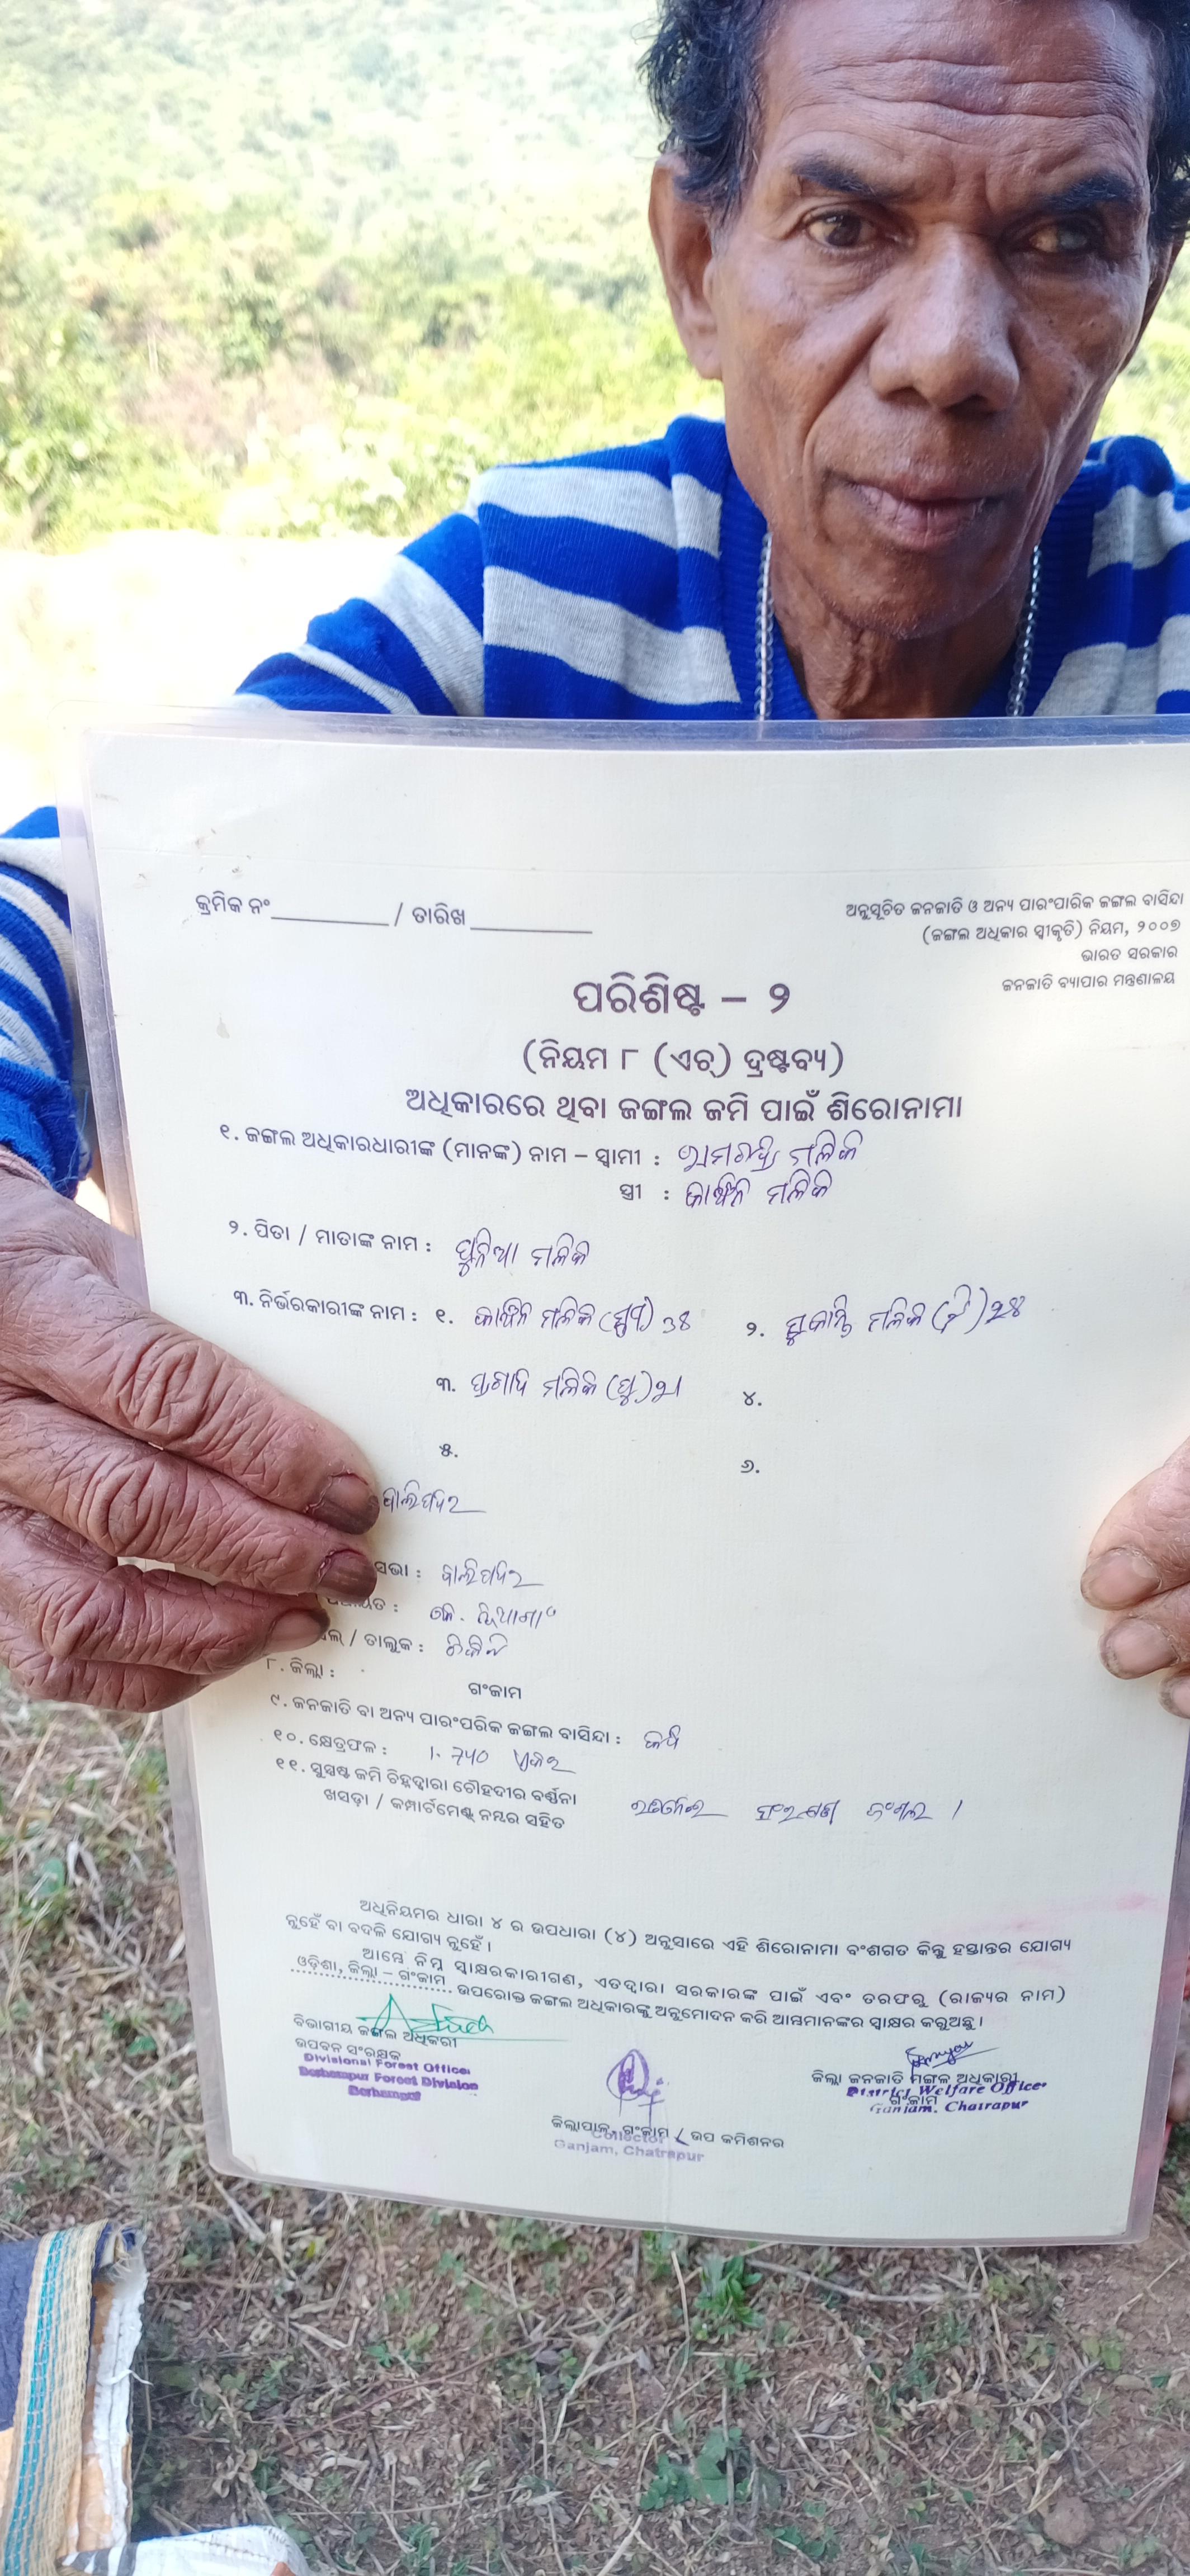 କ୍ରମିକ ନଂ / ତାରିଖ
ଅନୁସୂଚିତ ଜନଜାତି ଓ ଅନ୍ୟ ପାରଂପାରିକ ଜଙ୍ଗଲ ବାସିନ୍ଦା
(ଜଙ୍ଗଲ ଅଧିକାର ସ୍ୱୀକୃତି) ନିୟମ, ୨୦୦୭
ଭାରତ ସରକାର
ଜନଜାତି ବ୍ୟାପାର ମନ୍ତ୍ରଣାଳୟ
ପରିଶିଷ୍ଟ – ୨
(ନିୟମ ୮ (ଏଚ୍) ଦ୍ରଷ୍ଟବ୍ୟ)
ଅଧିକାରରେ ଥିବା ଜଙ୍ଗଲ ଜମି ପାଇଁ ଶିରୋନାମା
୧. ଜଙ୍ଗଲ ଅଧିକାରଧାରୀଙ୍କ (ମାନଙ୍କ) ନାମ – ସ୍ୱାମୀ : ମଲିକ
ସ୍ତ୍ରୀ : ମଲିକ
୨. ପିତା / ମାତାଙ୍କ ନାମ : ପୁନିଆ ମଲିକ
୩. ନିର୍ଭରକାରୀଙ୍କ ନାମ : ୧. ମଲିକ (ସ୍ତ୍ରୀ) ୩୫ ୨. ସୁକାନ୍ତି ମଲିକ (ଝି) ୨୫
୩. ମଲିକ (ପୁ) ୪.
୫. ୬.
ବାଲିପଦର
ସଭା : ବାଲିପଦର
କେ.
/ ତାଲୁକ : ଚିକିଟି
୮. ଜିଲ୍ଲା : ଗଂଜାମ
୯. ଜନଜାତି ବା ଅନ୍ୟ ପାରଂପରିକ ଜଙ୍ଗଲ ବାସିନ୍ଦା : କନ୍ଧ
୧୦. କ୍ଷେତ୍ରଫଳ : ଏକର
୧୧. ସୁସ୍ପଷ୍ଟ ଜମି ଚିହ୍ନଦ୍ୱାରା ଚୌହଦୀର ବର୍ଣ୍ଣନା
ଖସଡ଼ା / କମ୍ପାର୍ଟମେଣ୍ଟ ନମ୍ବର ସହିତ ସଂରକ୍ଷଣ ଜଂଗଲ ।
ଅଧିନିୟମର ଧାରା ୪ ର ଉପଧାରା (୪) ଅନୁସାରେ ଏହି ଶିରୋନାମା ବଂଶଗତ କିନ୍ତୁ ହସ୍ତାନ୍ତର ଯୋଗ୍ୟ
ନୁହେଁ ବା ବଦଳି ଯୋଗ୍ୟ ନୁହେଁ ।
ଆମ୍ଭେ ନିମ୍ନ ସ୍ୱାକ୍ଷରକାରୀଗଣ, ଏତଦ୍ୱାରା ସରକାରଙ୍କ ପାଇଁ ଏବଂ ତରଫରୁ (ରାଜ୍ୟର ନାମ)
ଓଡ଼ିଶା, ଜିଲ୍ଲା – ଗଂଜାମ ଉପରୋକ୍ତ ଜଙ୍ଗଲ ଅଧିକାରଙ୍କୁ ଅନୁମୋଦନ କରି ଆମ୍ଭମାନଙ୍କର ସ୍ୱାକ୍ଷର କରୁଅଛୁ ।
ବିଭାଗୀୟ ଜଙ୍ଗଲ ଅଧିକାରୀ
ଉପବନ ସଂରକ୍ଷକ
Divisional Forest Officer
Berhampur Forest Division
Berhampur
ଜିଲ୍ଲାପାଳ, ଗଂଜାମ / ଉପ କମିଶନର
Collector
Ganjam, Chatrapur
ଜିଲ୍ଲା ଜନଜାତି ମଙ୍ଗଳ ଅଧିକାରୀ
ଗଂଜାମ
District Welfare Officer
Ganjam, Chatrapur